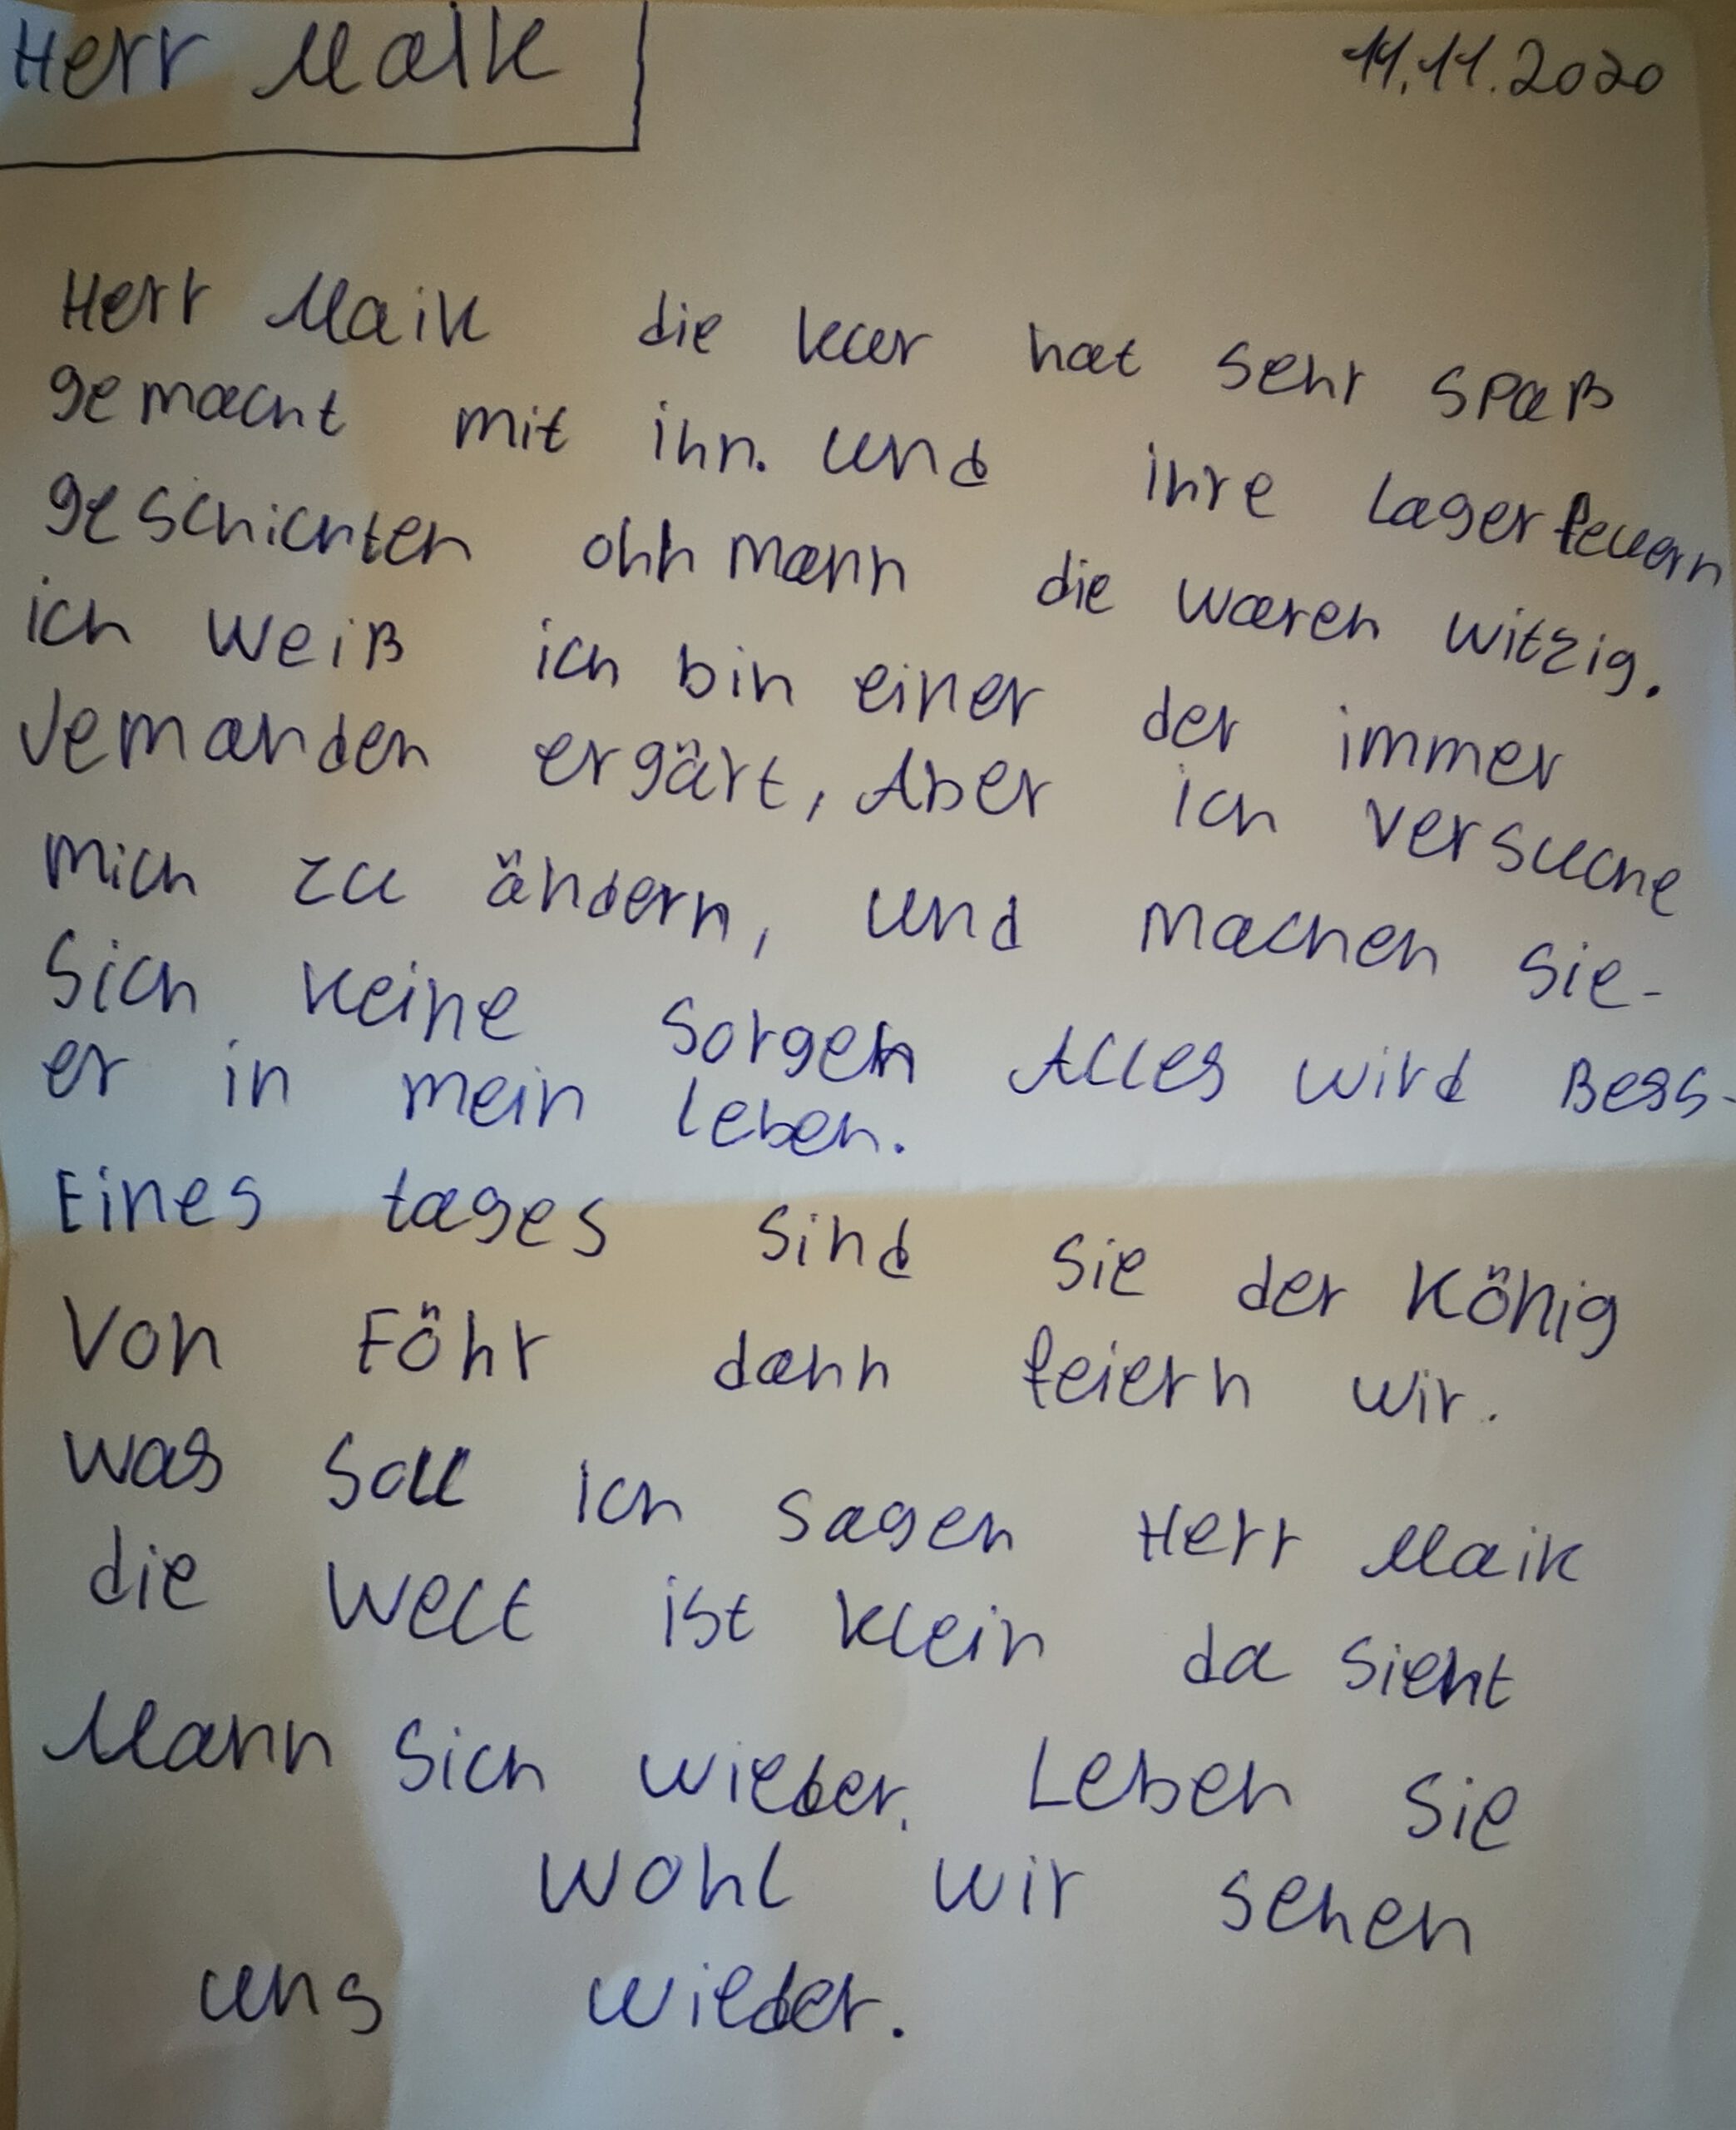 Herr Maik
11.11.2020
Herr Maik die kur hat sehr spaß
gemacht mit ihn. und ihre Lagerfeuern
geschichten ohh mann die waren witzig.
ich weiß ich bin einer der immer
Jemanden ergärt, Aber ich versuche
mich zu ändern, und machen sie-
sich keine sorgen Alles wird Bess-
er in mein leben.
Eines tages sind sie der König
Von Föhr dann feiern wir.
was soll ich sagen Herr Maik
die Welt ist klein da sieht
Mann sich wieder. Leben sie
wohl wir sehen
uns wieder.